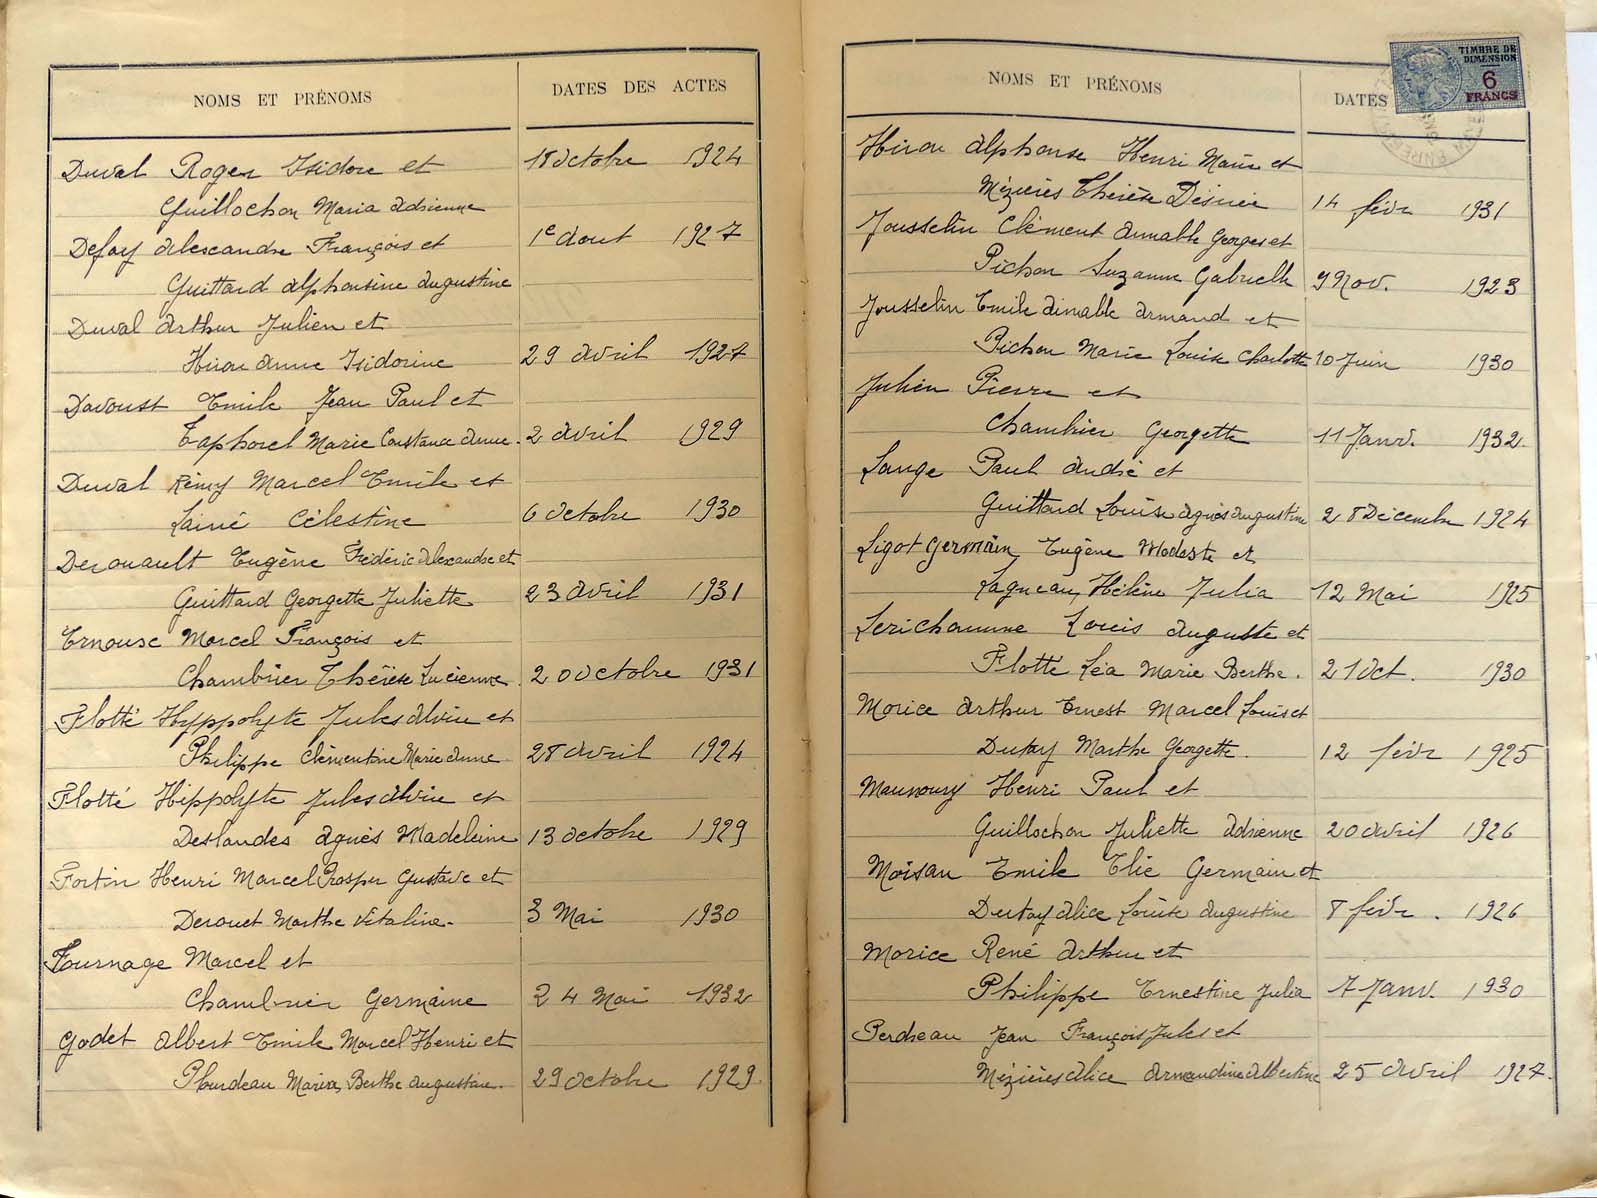 NOMS ET PRÉNOMS
DATES DES ACTES
Duval Roger Isidore et
18 octobre 1924
Guillochon Maria Adrienne
Defay Alexandre François et
1e Aout 1927
Guittard Alphonsine Augustine
Duval Arthur Julien et
Hirou Anne Isidorine
29 Avril 1927
Davoust Emile Jean Paul et
Taphorel Marie Constance Anne.
2 Avril 1929
Duval Rémy Marcel Emile et
Lainé Célestine
6 Octobre 1930
Derouault Eugène Frédéric Alexandre et
Guittard Georgette Juliette
23 Avril 1931
Ernouse Marcel François et
Chambrier Thérèse Lucienne.
20 Octobre 1931
Flotté Hyppolyte Jules Alvin et
Philippe Clémentine Marie Anne
28 Avril 1924
Flotté Hippolyte Jules Alvin et
Deslandes Agnès Madeleine
13 Octobre 1929
Fortin Henri Marcel Prosper Gustave et
Derouet Marthe Vitaline.
3 Mai 1930
Fournage Marcel et
Chambrier Germaine
24 Mai 1932
Godet Albert Emile Marcel Henri et
Plurdeau Maria, Berthe Augustine.
29 Octobre 1929.
NOMS ET PRÉNOMS
DATES
TIMBRE DE
DIMENSION
6
FRANCS
Hirou Alphonse Henri Marie et
Mézières Thérèse Désirée
14 févr 1931
Jousselin Clément Aimable Georges et
Pichon Suzanne Gabrielle
9 Nov. 1923
Jousselin Emile Aimable Armand et
Pichon Marie Louise Charlotte
10 Juin 1930
Julien Pierre et
Chambrier Georgette
11 Janv. 1932.
Lange Paul André et
Guittard Louise Agnès Augustine
28 Décembre 1924
Ligot Germain, Eugène Modeste et
Lagneau, Hélène Julia
12 Mai 1925
Lerichomme Louis Auguste et
Flotté Léa Marie Berthe.
21 Oct. 1930
Morice Arthur Ernest Marcel Louis et
Dutay Marthe Georgette.
12 févr 1925
Maunoury Henri Paul et
Guillochon Juliette Adrienne
20 Avril 1926
Moisan Emile Elie Germain et
Dutay Alice Louise Augustine
8 févr. 1926
Morice René Arthur et
Philippe Ernestine Julia
7 Janv. 1930
Perdreau Jean François Jules et
Mézières Alice Armandine Albertine
25 Avril 1927.